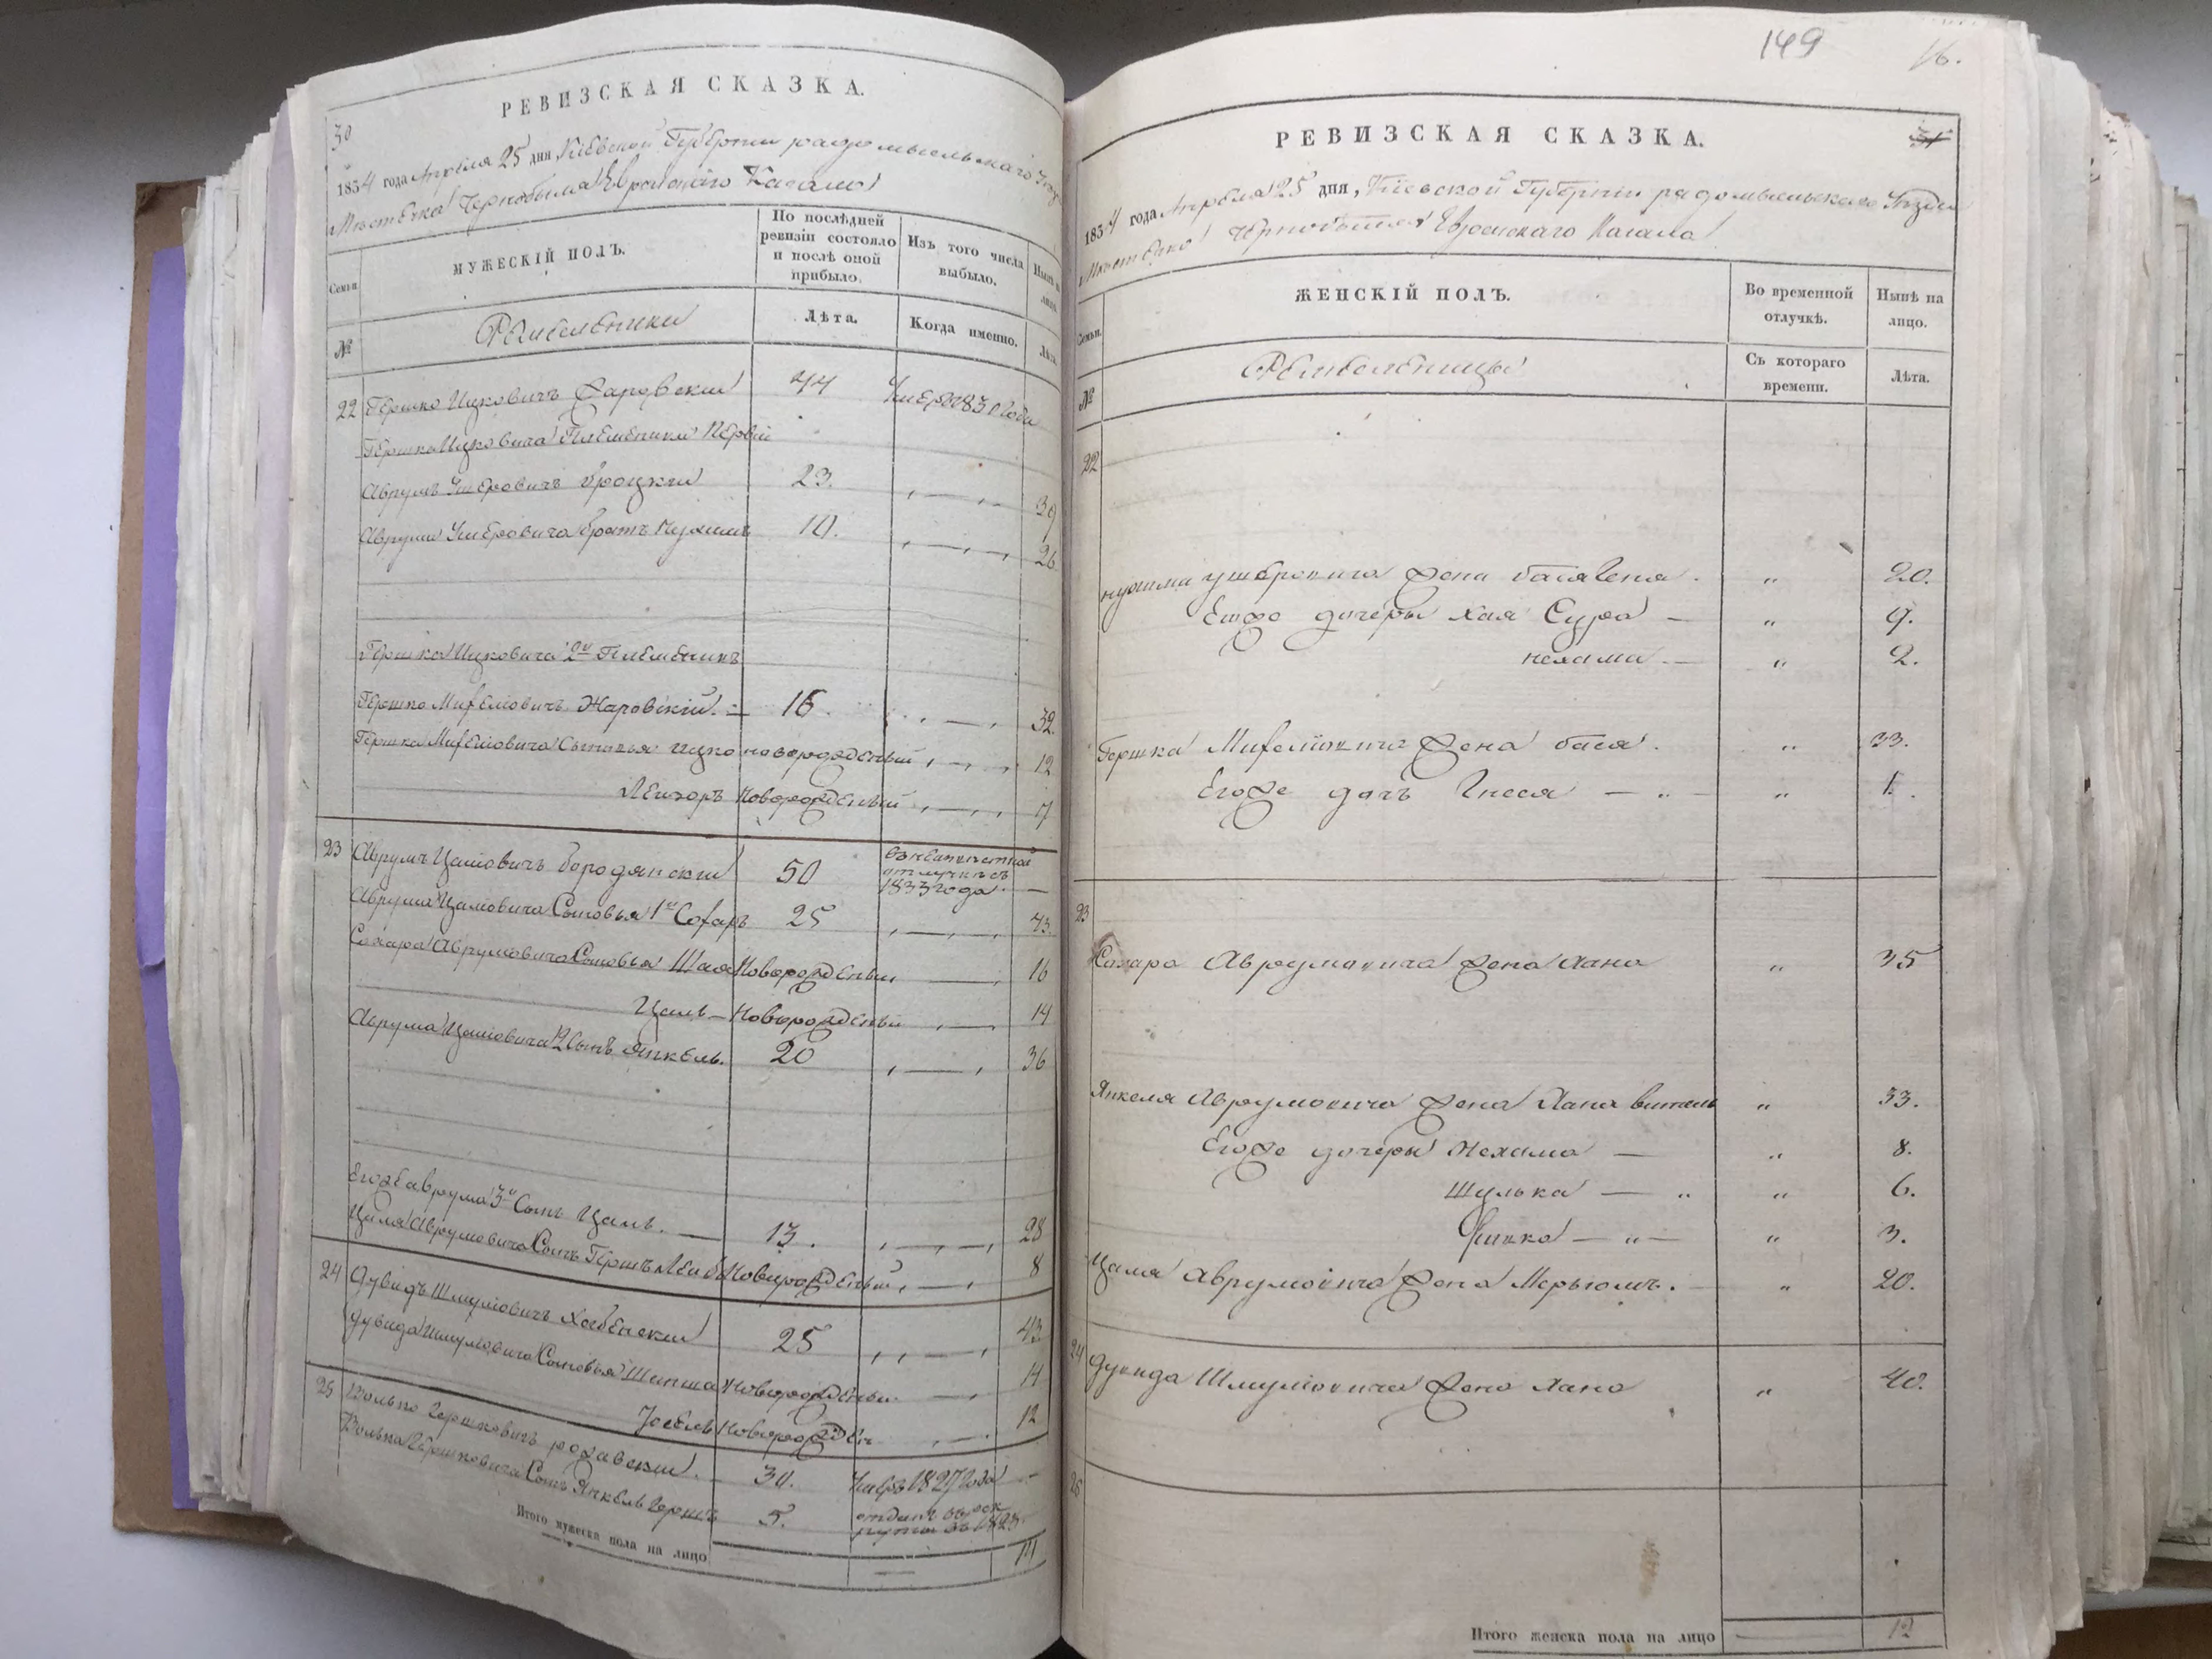 РЕВИЗСКАЯ СКАЗКА.
30
1834 года Апреля 25 дня Кіевской Губерніи радомысльскаго Уезда
Местечка Чернобыля Еврейскаго Кагала
Семьи.
МУЖЕСКІЙ ПОЛЪ.
По послѣдней ревизіи состояло и послѣ оной прибыло.
Изъ того числа выбыло.
Нынѣ на лицо.
№
Лѣта.
Когда именно.
Лѣта.
22 Гершко Ицковичъ 44 Умеръ 1831 года
Гершка Ицковича Племеники Первій
Аврумъ Ушеровичъ Броцкій 23. 39
Аврума Ушеровича братъ Нухимъ 10. 26
Гершка Ицковича 2й Племеникъ
Гершко Жаровскій. 16. 32.
Гершка Сыновья Ицко новорожденый 12
Лейзоръ Новорожденый 7
23 Аврумъ Цаліовичъ Бородянскій 50 отлучкѣ съ 1833 года. —
Аврума Цаліовича Сыновья 1й Сохаръ 25 43.
Сахара Аврумовича Сыновья Шая Новорожденый 16
Цаль — Новорожденый 14
Аврума Цаліовича 2й Сынъ Янкель. 20 36
Егоже Аврума 3й Сынъ Цаль. — 13. 28
Цаля Аврумовича Сынъ Гершъ Лейб Новорожденый 8
24 Дувидъ Шмуліовичъ 25 43.
Дувида Шмуліовича Сыновья Новорожденый 14
Новорожден 12
25 Волько Гершковичъ 30. Умеръ 1827 года —
Волька Гершковича Сынъ Янкель Гершъ 5. отданъ въ рек
Итого мужеска пола на лицо 14
149
16.
РЕВИЗСКАЯ СКАЗКА.
31
1834 года Апреля 25 дня, Кіевской Губерніи радомысльскаго Уезда
Местечка Чернобыля Еврейскаго Кагала
Семьи.
ЖЕНСКІЙ ПОЛЪ.
Во временной отлучкѣ.
Нынѣ на лицо.
№
Съ котораго времени.
Лѣта.
22
Нухима Ушеровича жена Бася . „ 20.
Егоже дочеры Хая Сура — „ 9.
Нехама — „ 2.
Гершка жена Бася . „ 33.
Егоже дочъ Гнеся — „ — „ 1.
23
Сахара Аврумовича жена Хана „ 35
Янкеля Аврумовича жена Хана „ 33.
Егоже дочеры Нехама — „ 8.
Шулька — „ „ 6.
Ривка — „ — „ 3.
Цаля Аврумовича жена Мерьюмъ. — „ 20.
24 Дувида Шмуліовича жена Хана „ 40.
25
Итого женска пола на лицо — 12